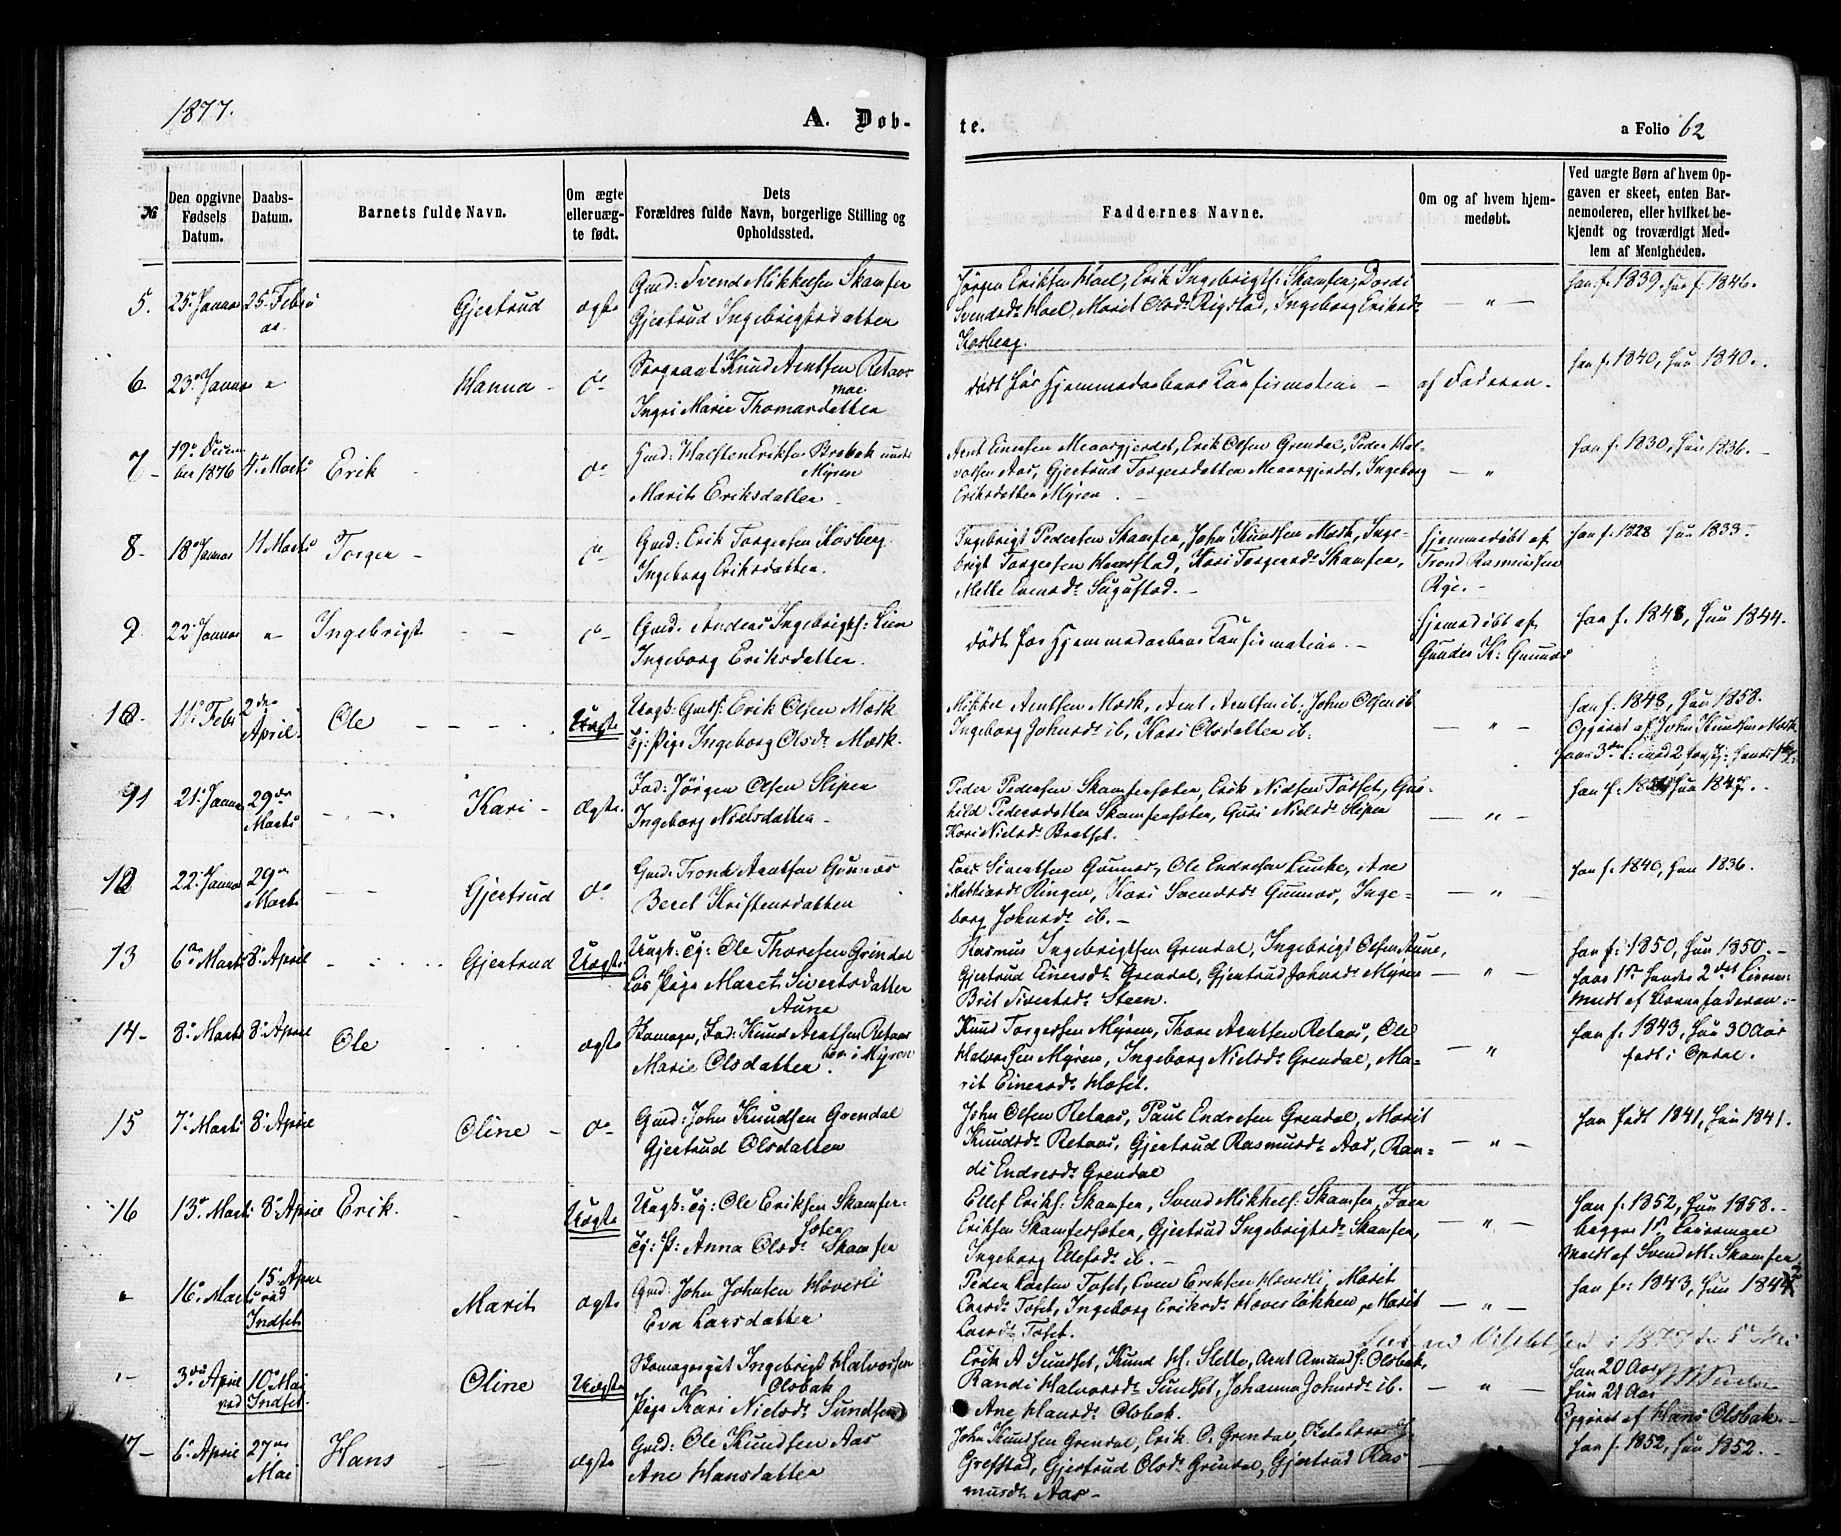 1877.
A. Døb-
te.
a Folio 62
№
Den opgivne Fødsels Datum.
Daabs-Datum.
Barnets fulde Navn.
Om ægte eller uæg-te født.
Dets Forældres fulde Navn, borgerlige Stilling og Opholdssted.
Faddernes Navne.
Om og af hvem hjem-medøbt.
Ved uægte Børn af hvem Op-gaven er skeet, enten Bar-nemoderen, eller hvilket be-kjendt og troværdigt Med-lem af Menigheden.
5. 25. Januar 25. Februar Gjertrud ægte
Gmd: Svend Mikkelsen Skamfer
Gjertrud Ingebrigtsdatter
Jørgen Eriksen Hoel, Erik Ingebrigts: Skamfer, Dordi
Svendsd: Hoel, Marit Olsd: Rigstad, Ingeborg Eriksd:
Kosberg.
— " —
han f. 1839, hun f. 1846.
6. 23. Januar " Hanna do
Sergeant Knud Arntsen Retaas
moe
Ingri Marie Thomasdatter
død før Hjemmedaabens Confirmation —
af Faderen.
han f. 1840, hun 1840.
7 19. Decem-
ber 1876 4. Marts Erik do
Gmd: Halsten Eriksen Brobak
Myren
Marit Eriksdatter
Arnt Einersen Meaasgjerdet, Erik Olsen Grendal, Peder Hal-
vorsen Aas, Gjertrud Torgersdatter Meaasgjerdet, Ingeborg
Eriksdatter Myren
— "
han f. 1830, hun 1836.
8 18. Januar 4. Marts Torger do
Gmd: Erik Torgersen Kosberg
Ingeborg Eriksdatter.
Ingebrigt Pedersen Skamfer, John Knudsen Mærk, Inge-
brigt Torgersen Haverstad, Kari Torgersd: Skamfer,
Mette Evensd: Sugustad. —
hjemmedøbt af
Trond Rasmussen
Rye. —
han f. 1828 hun 1833.
9. 22. Januar " Ingebrigt do
Gmd. Anders Ingebrigts: Lien
Ingeborg Eriksdatter.
død før Hjemmedaabens Confirmation. —
hjemedøbt af
Gunder K: Gunnes
han f. 1848, hun 1844.
10. 11. Febr 2den
April Ole Uægte
Ungk: Gmds: Erik Olsen Mærk
Tj: Pige Ingeborg Olsd: Mærk.
Mikkel Arntsen Mærk, Arnt Arntsen ib. John Olsen ib
Ingeborg Johnsd: ib, Kari Olsdatter ib.
— " —
han f. 1848, hun 1853.
Opgivet af John Knudsen Mærk
hans 3die L: med 2 forskj: hendes 1ste
11 21. Januar 29de
Marts Kari Ægte.
Ind: Jørgen Olsen Slipen
Ingeborg Nielsdatter
Peder Pedersen Skamfersæter, Erik Nielsen Tøfset, Gun-
hild Pedersdatter Skamfersæter, Guri Nielsd: Slipen
Kari Nielsd: Bratset.
— " —
hun 1847.
12 22. Januar 29de
Marts Gjertrud do
Gmd: Trond Arntsen Gunnes
Beret Kristensdatter
Lars Sivertsen Gunnes, Ole Endresen Lunke, Ane
Mathiasd: Ringen, Kari Svendsd: Gunnes, Inge-
borg Johnsd: ib. —
— " —
han f. 1840, hun 1836.
13 6te Marts 8. April Gjertrud Uægte
Ungk: Tj: Ole Thoresen Grindal
Løs Pige Maret Sivertsdatter
Aune
Rasmus Ingebrigtsen Grendal, Ingebrigt Olsen Aune,
Gjertrud Einersd: Grendal, Gjertrud Johnsd: Myren
Brit Sivertsd: Steen.
— " —
han f: 1850, hun 1850. —
hans 1ste hendes 2det Leierm:
Meldt af Barnefaderen. —
14 8. Marts 8. April Ole ægte
Skomager, Ind: Knud Arntsen Retaas
boe i Myren
Marie Olsdatter.
Knud Torgersen Myren, Thore Arntsen Retaas, Ole
Halvorsen Myren, Ingeborg Nielsd: Grendal, Ma-
rit Einersd: Hoset.
— "
han f. 1843, hun 30 Aar
født i Opdal.
15 7. Marts 8. April Oline do
Gmd: John Knudsen Grendal
Gjertrud Olsdatter
John Olsen Retaas, Paul Endresen Grendal, Marit
Knudsd: Retaas, Gjertrud Rasmusd: Aas, Ran-
di Endresd: Grendal
— " —
han født 1841, hun 1841.
16 13. Marts 8. April Erik. Uægte
Ungk: Tj: Ole Eriksen Skamfer-
sæter
Tj: P: Anna Olsd: Skamfer
Ellef Eriks: Skamfer, Svend Mikkels: Skamfer, Iver
Eriksen Skamfersæter, Gjertrud Ingebrigtsd: Skamfer,
Ingeborg Ellefsd: ib. —
— " —
han f. 1852, hun 1858. —
begges 1ste Leiermaal
Meldt af Svend M: Skamfer
" 16. Marts 15. April
ved
Indset Marit ægte
Gmd: John Johnsen Høverli
Eva Larsdatter
Peder Larsen Tøfet, Even Eriksen Høverli, Marit
Larsd: Tøfet, Ingeborg Eriksd: Haversløkken, Marit
Larsd: Tøfet.
— " —
han f: 1843, hun 1844
" 3die April 10. Mai
ved Indset Oline Uægte
Skomagergut Ingebrigt Halvorsen
Olsbak
Pige Kari Nielsd: Sundset
Erik A Sundset, Knud H: Slette, Arnt Amunds: Olsbak,
Randi Halvorsd: Sundset, Johanna Johnsd: ib.
Ane Hansd: Olsbak.
— " —
han 20 Aar
hun 21 Aar
Opgivet af Hans Olsbak. —
17 6. April 27de
Mai Hans ægte
Gmd: Ole Knudsen Aas
Ane Hansdatter
John Knudsen Grendal, Erik O. Grendal,
Grefstad, Gjertrud Olsd: Grindal, Gjertrud Ras
musd: Aas —
han f. 1852, hun 1852. —